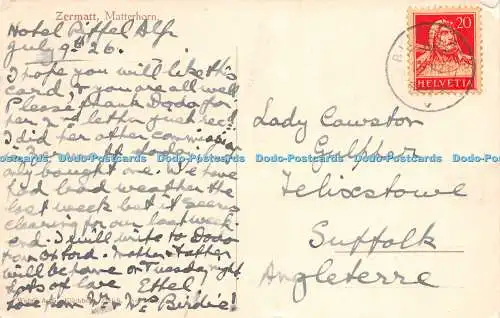 Zermatt, Matterhorn
Hotel Riffel Alp
July 9th 26.
I hope you will like this
card & you are all well
Please thank Dodo for
her 2nd letter just recd
I did her other commission
only bought one. We have
had bad weather the
last week but it seems
clearing for our last week
end. I will write to Dodo
from Oxford. Mother & Father
will be home on Tuesday night
Lots of love Ethel.
Love from Mr & Mrs Birdie!
20
HELVETIA
Lady Cowston
Gulpher
Felixstowe
Suffolk
Angleterre
Dodo-Postcards Dodo-Postcards Dodo-Postcards Dodo-Postcards Dodo-Postcards